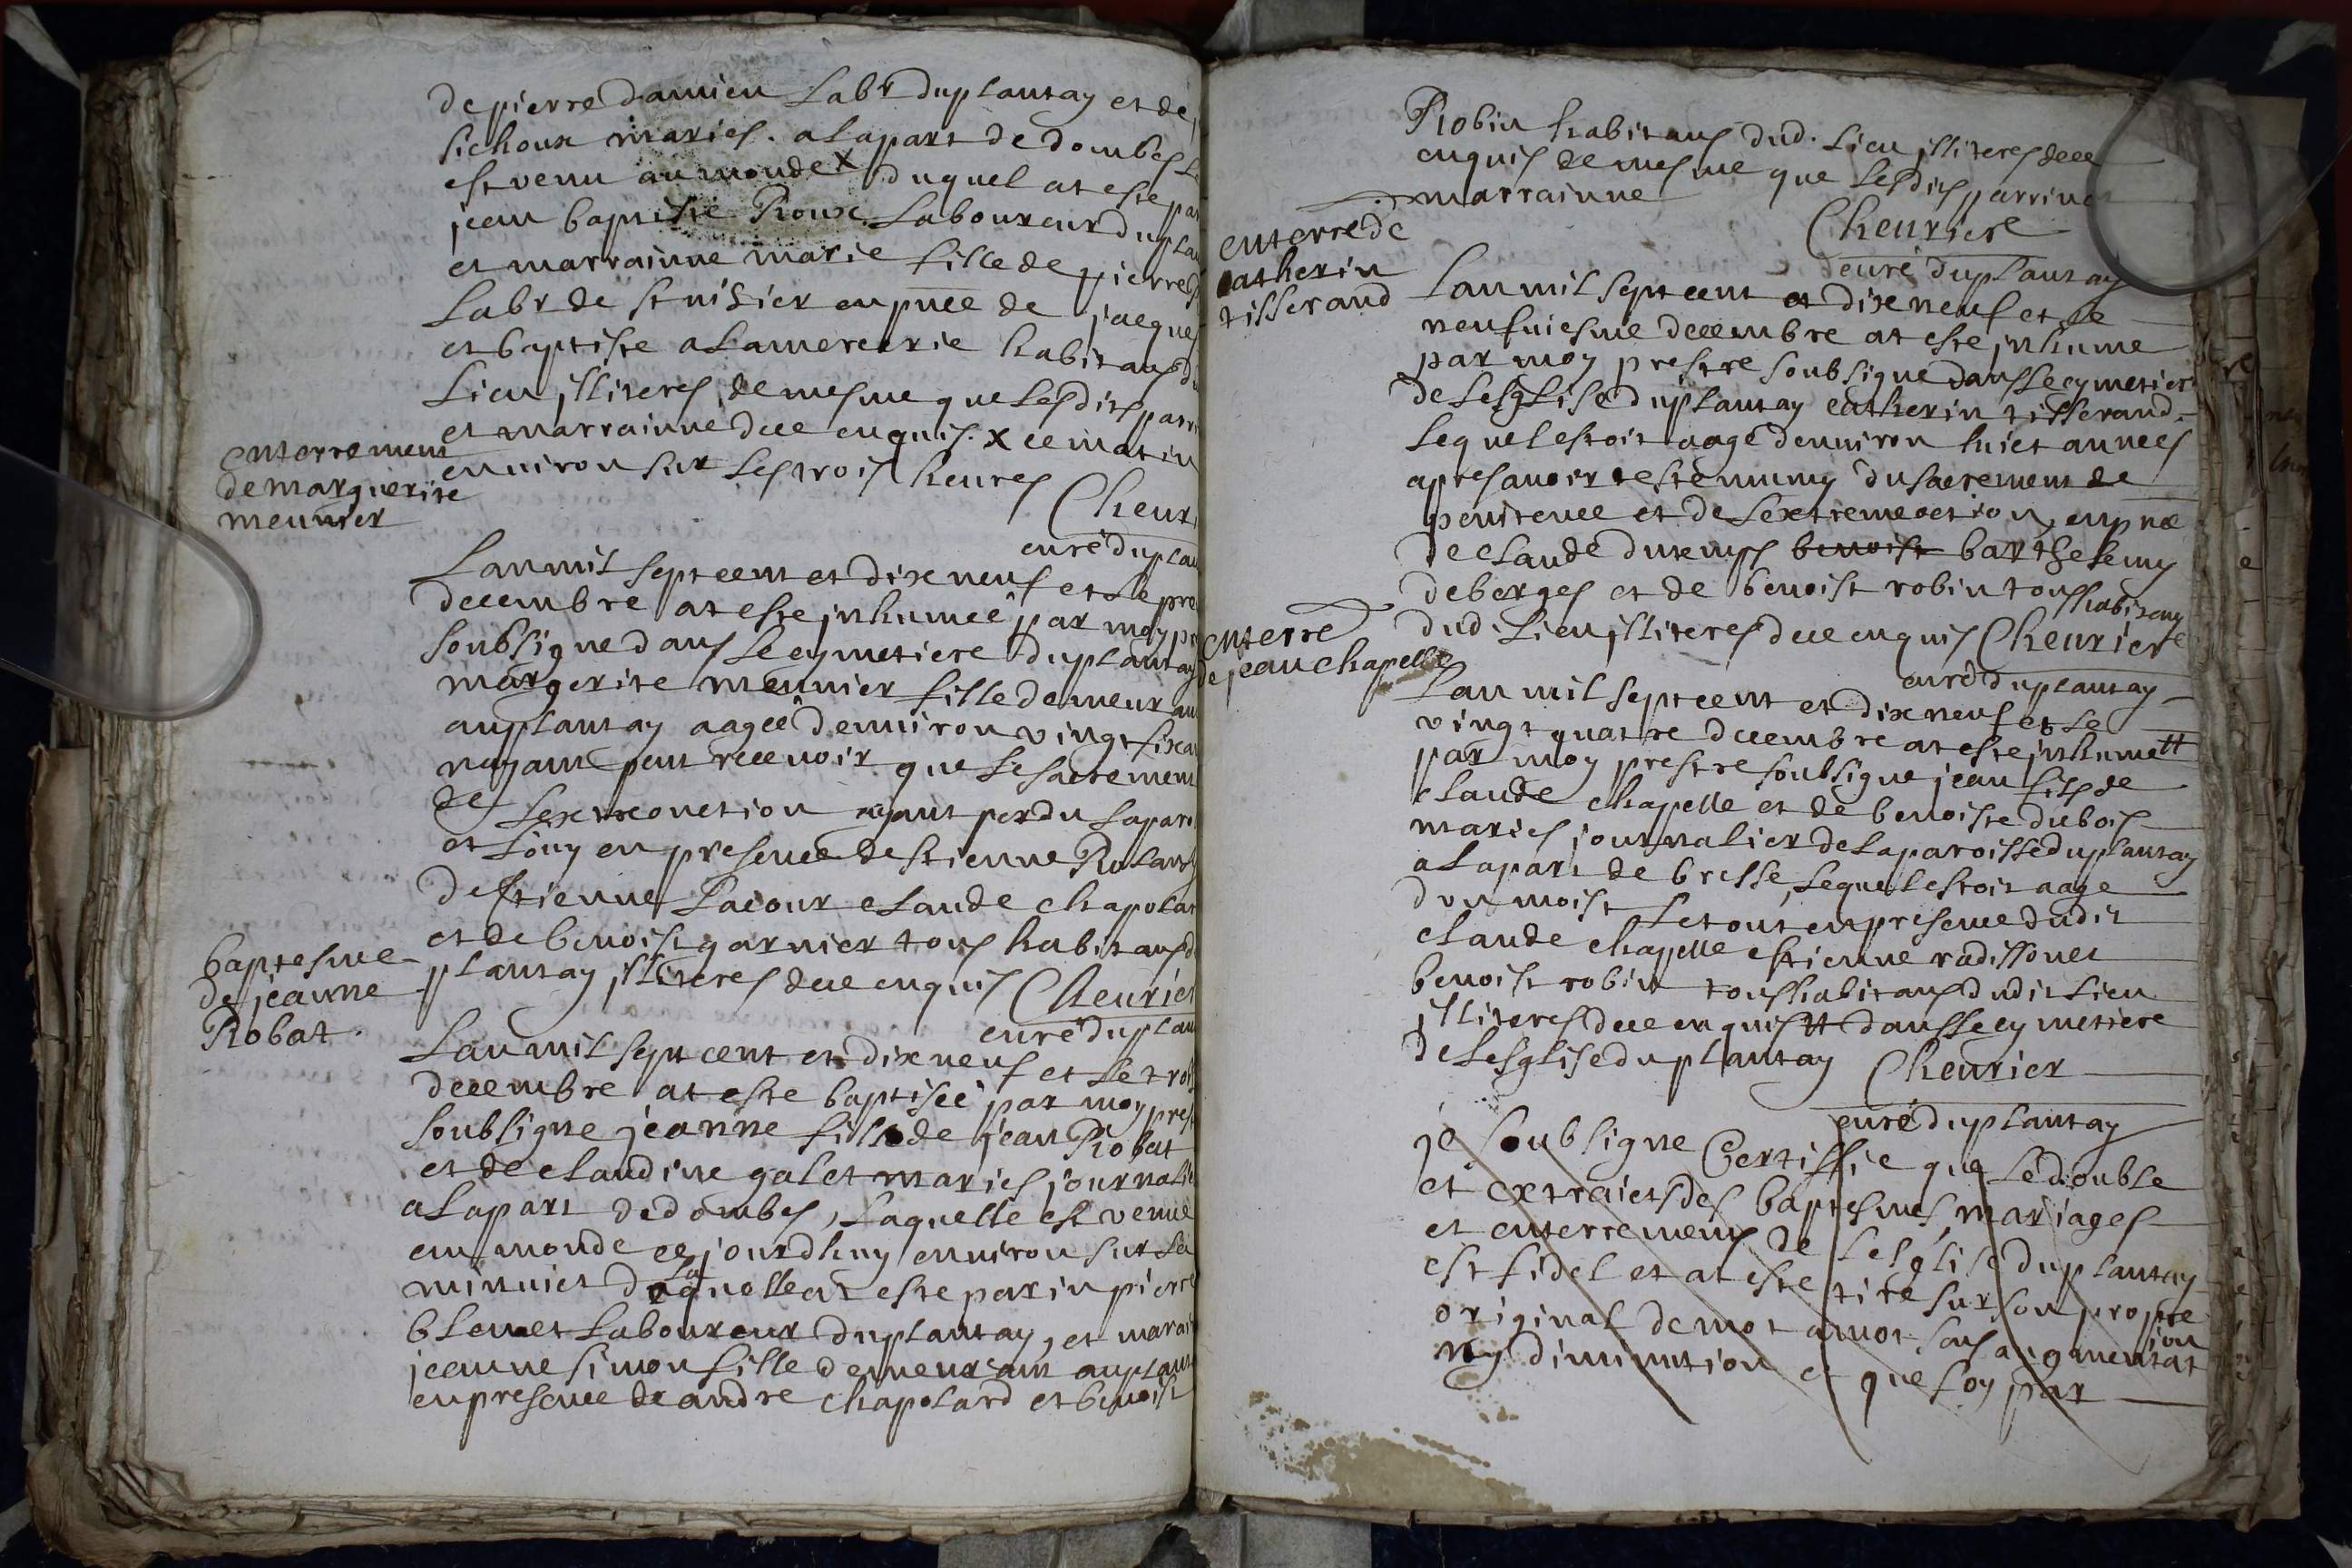 de pierre damien labr duplantay et de
sichoux maries. a la part de dombes le
est venu au monde x duquel at este par
jean baptiste Roux laboureur duplan
et marrainne marie fille de pierre
labr de st nisier en pnce de jacques
et baptiste alamercerie habitans du
lieu illiteres de mesme que lesdits parr
et marrainne dece enquis. x ce matin
environ sur les trois heures
Cheur
curé duplan
enterrement
de marguerite
meunier
Lan mil sept cent et dix neuf et le pre
decembre at este inhumeé par moy pr
soubsigne dans le cymetiere duplantay
margerite meunier fille demeuran
auplantay aagée denviron vingt six an
nayant peut recevoir que le sacrement
de lextreonction ayant perdu la paro
et louy en presence destienne Roland
destienne Lacour claude chapolar
et de benoist garnier tous habitans d
plantay illiteres dece enquis Cheurier
curé duplan
baptesme
de jeanne
Robat.
Lan mil sept cent et dix neuf et le trois
decembre at este baptiseé par moy prest
soubsigne jeanne fille de jean Robat
et de claudine galet maries journalie
a la part de dombes, laquelle est venue
au monde ce jourdhuy environ sur la
minuict de laquelle at este parin pierre
blenet laboureur duplantay, et marain
jeanne simon fille demeurant auplant
en presence de andre chapolard et benoist
Robin habitans dud. lieu illiteres dece
enquis de mesme que lesdits parrin et
marrainne
Cheuriere
curé duplantay
enterre de
catherin
tisserand
Lan mil sept cent et dix neuf et le
neufuiesme decembre at este inhume
par moy prestre soubsigne dans le cymetier
de lesglise duplantay catherin tisserand
lequel estoit aagé denviron huict années
apres avoir esté muny du sacrement de
penitence et de lextremeoction, en pnce
de claude dutemps benoist barthelemy
deberges et de benoist robin tous habitans
dud. lieu illiteres dece enquis Cheuriere
curé duplantay
enterre
de jean chapelle
Lan mil sept cent et dix neuf et le
vingt quatre decembre at este inhume tt
par moy prestre soubsigne jean fils de
claude chapelle et de benoiste dubois
maries journalier de la paroisse duplantay
a la part de bresse, lequel estoit aage
dun mois le tout en presence dudit
claude chapelle estienne radissonet
benoist robin tous habitans dudit lieu
illiteres dece enquis tt dans le cymetiere
de lesglise duplantay Cheurier
curé duplantay
je soubsigne Certiffie que le double
et extraicts des baptesmes, mariages
et enterremens de lesglise duplantay
est fidel et at este tiré sur son propre
original de mot a mot sans augmentation
ny diminution et que foy par